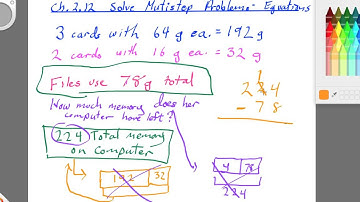 Ch. 2.12 Solve Mutistep Problems - Equations
3 cards with 64 g ea. = 192 g
2 cards with 16 g ea. = 32 g
Files use 78g total
How much memory does her
computer have left?
224
- 78
224 Total memory
on Computer
192 32
4 78
224